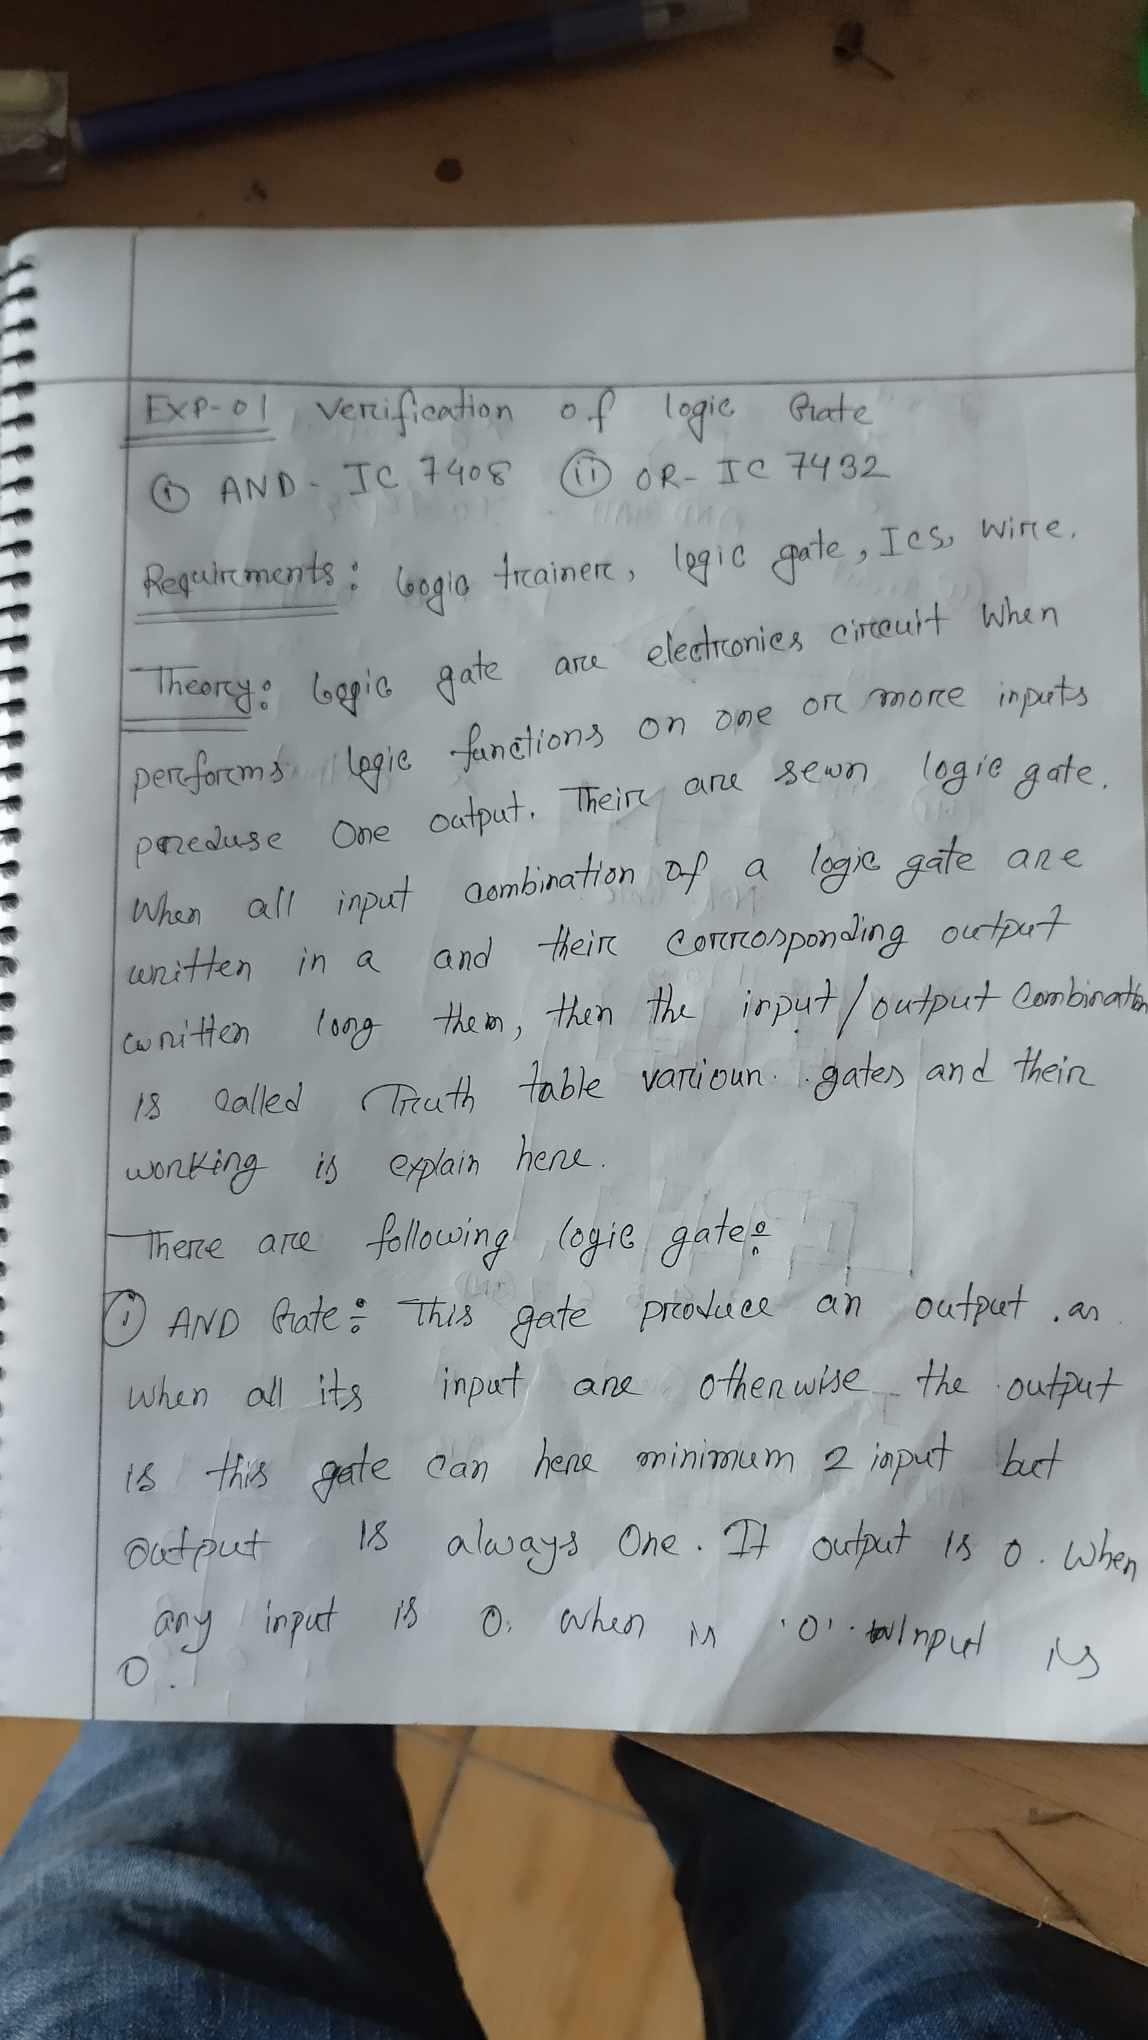 EXP-01 Verification of logic Gate
(i) AND - IC 7408 (ii) OR - IC 7432
Requirements : Logic trainer, logic gate, ICs, wire.
Theory: Logic gate are electronics circuit when
performs logic functions on one or more inputs
preduse One output. Their are sewn logic gate.
When all input combination of a logic gate are
written in a and their corrosponding output
written long them, then the input/output Combination
is called Truth table varioun gates and their
working is explain here.
There are following logic gate:
(i) AND Gate : This gate produce an output . as
when all its input are otherwise the output
is this gate can here minimum 2 input but
output is always One. It output is 0. When
any input is 0. when is '0'. Input is
0.